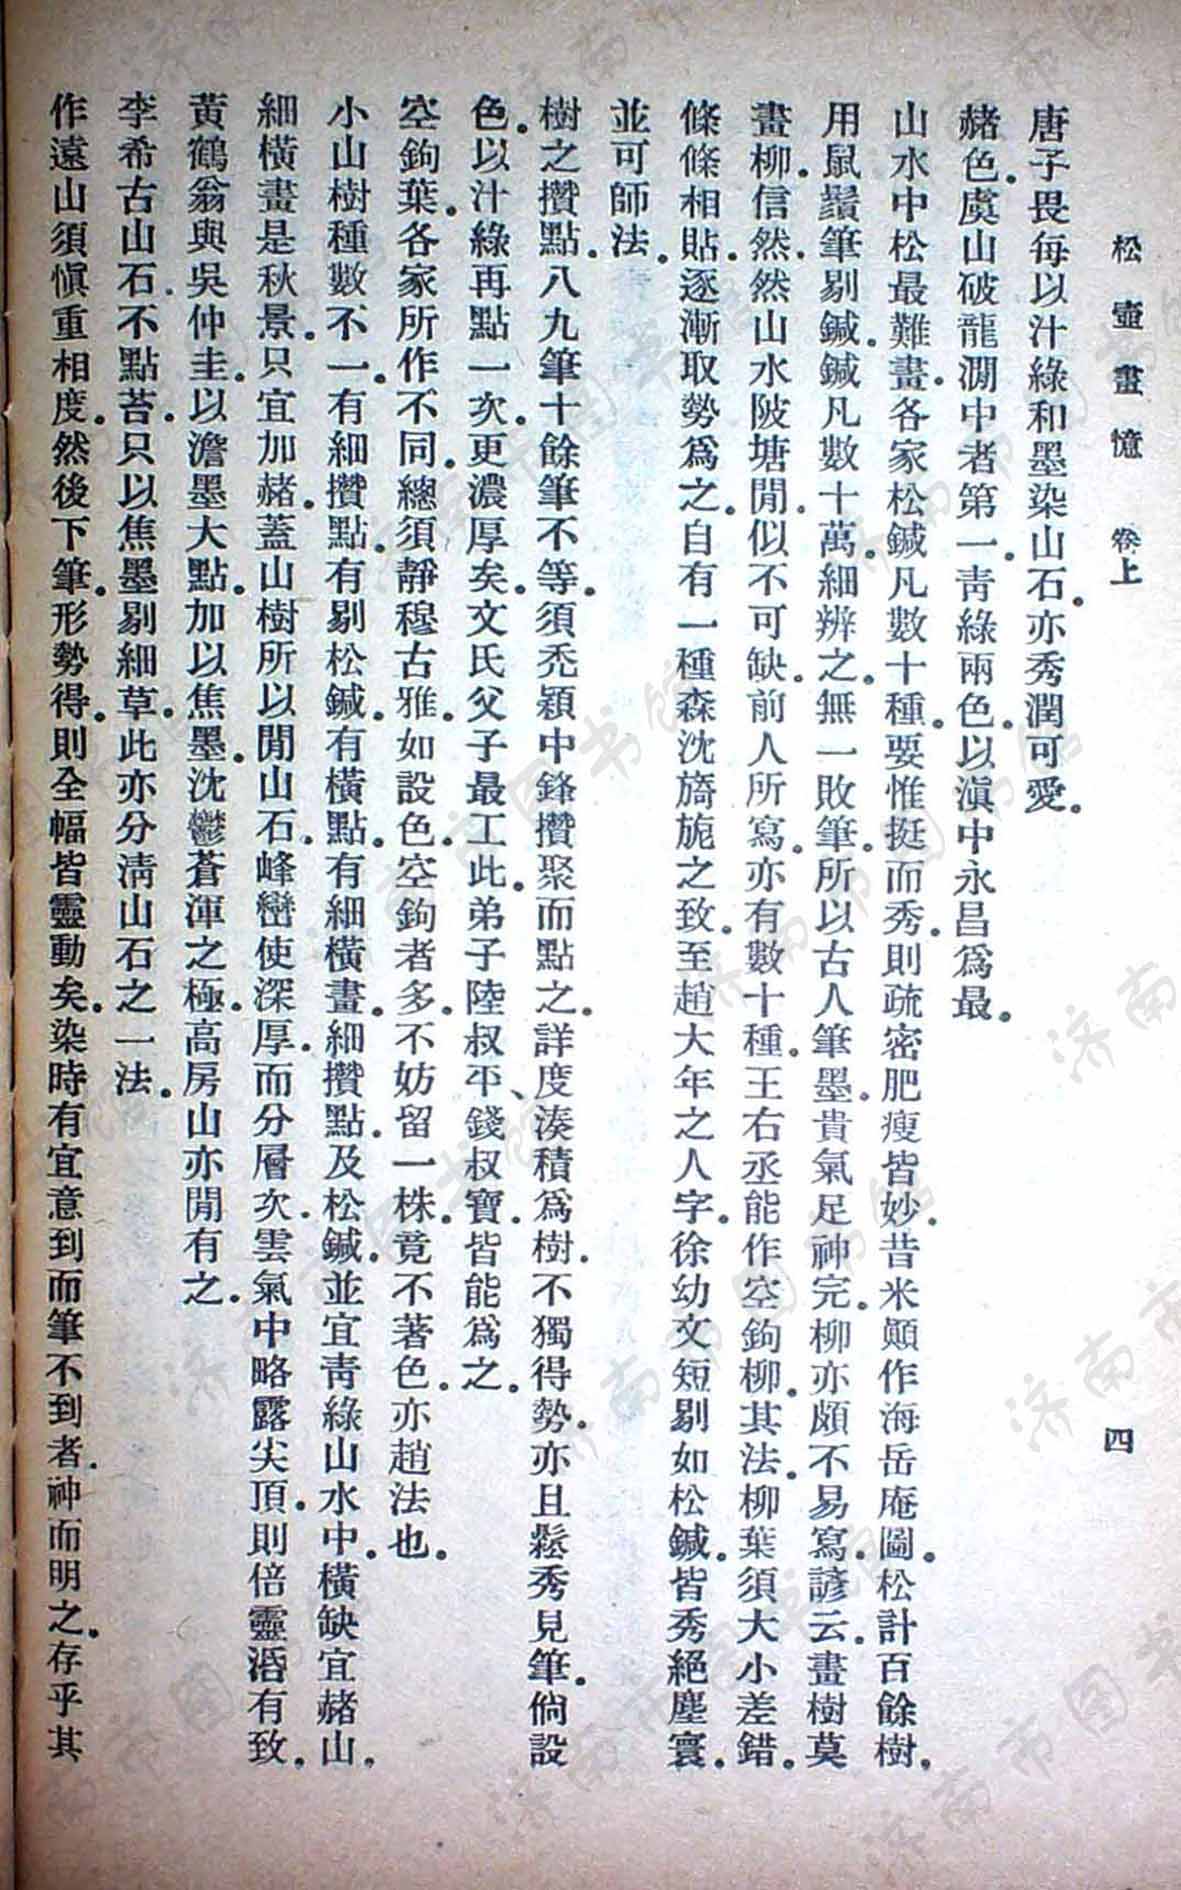 松壺畫憶　卷上　四
唐子畏每以汁綠和墨染山石。亦秀潤可愛。
赭色。虞山破龍澗中者第一。青綠兩色。以滇中永昌爲最。
山水中松最難畫。各家松鍼凡數十種。要惟挺而秀。則疏密肥瘦皆妙。昔米顚作海岳庵圖。松計百餘樹。
用鼠鬚筆剔鍼。鍼凡數十萬。細辨之。無一敗筆。所以古人筆墨。貴氣足神完。柳亦頗不易寫。諺云。畫樹莫
畫柳。信然。然山水陂塘閒。似不可缺。前人所寫。亦有數十種。王右丞能作空鉤柳。其法。柳葉須大小差錯。
條條相貼。逐漸取勢爲之。自有一種森沈旖旎之致。至趙大年之人字。徐幼文短剔如松鍼。皆秀絕塵寰。
並可師法。
樹之攢點。八九筆十餘筆不等。須禿穎中鋒攢聚而點之。詳度湊積爲樹。不獨得勢。亦且鬆秀見筆。倘設
色。以汁綠再點一次。更濃厚矣。文氏父子最工此。弟子陸叔平、錢叔寶。皆能爲之。
空鉤葉。各家所作不同。總須靜穆古雅。如設色。空鉤者多。不妨留一株。竟不著色。亦趙法也。
小山樹種數不一。有細攢點。有剔松鍼。有橫點。有細橫畫。細攢點。及松鍼。並宜青綠山水中。橫缺宜赭山。
細橫畫是秋景。只宜加赭。蓋山樹所以閒山石。峰巒使深厚。而分層次。雲氣中略露尖頂。則倍靈湣有致。
黃鶴翁與吳仲圭。以澹墨大點。加以焦墨。沈鬱蒼渾之極。高房山亦閒有之。
李希古山石不點苔。只以焦墨剔細草。此亦分淸山石之一法。
作遠山須愼重相度。然後下筆。形勢得。則全幅皆靈動矣。染時有宜意到而筆不到者。神而明之。存乎其